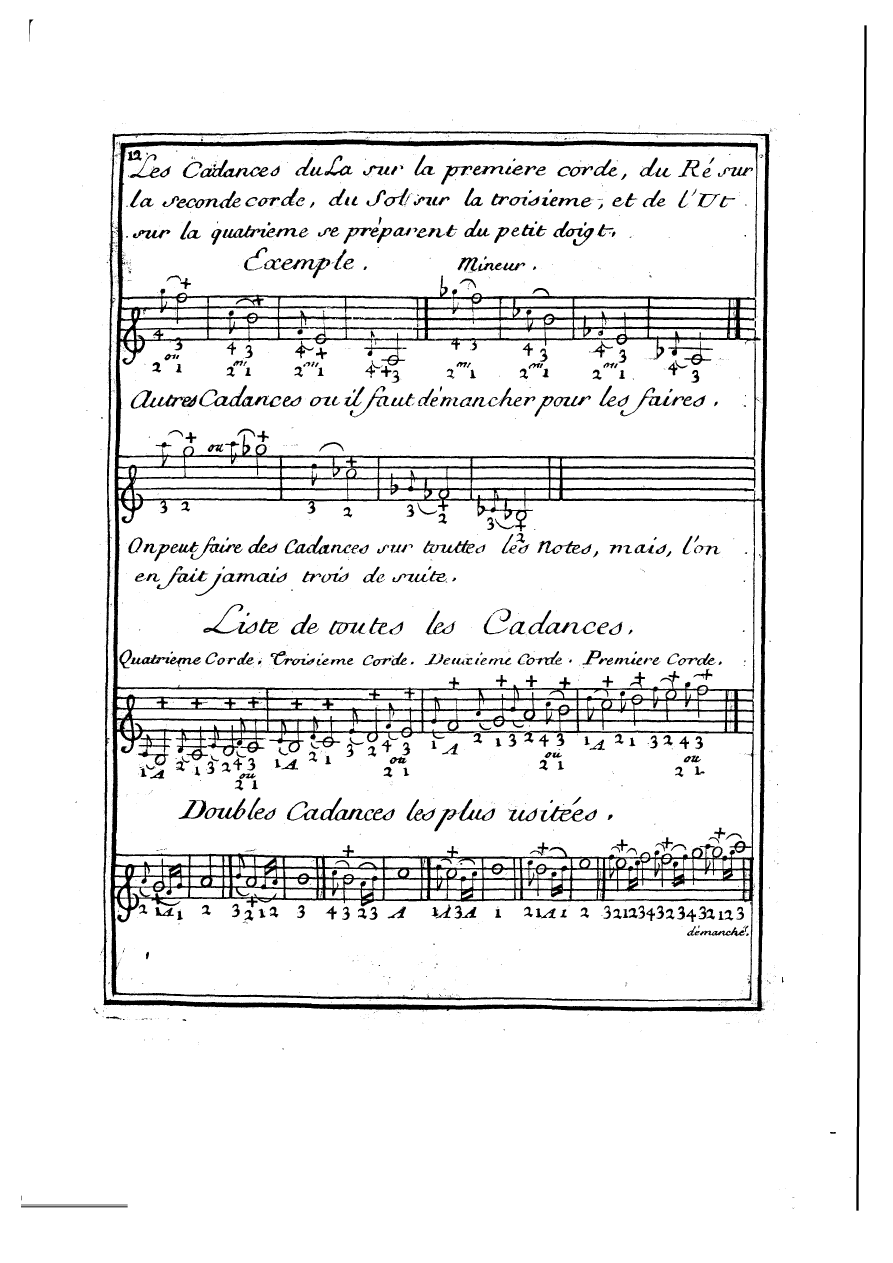 12
Les Cadances du La sur la premiere corde, du Ré sur
la seconde corde, du Sol sur la troisieme, et de l'Ut
sur la quatrieme se préparent du petit doigt.
Exemple. Mineur.
4 3 4 3 4 + 4 + 3 4 3 4 3 4 3 4 3
ou
2 1 2 m. 1 2 m. 1 2 m. 1 2 m. 1 2 m. 1
Autres Cadances ou il faut démancher pour les faires.
ou
3 2 3 2 3 2 3 2
On peut faire des Cadances sur touttes les Notes, mais, l'on
en fait jamais trois de suite.
Liste de toutes les Cadances.
Quatrieme Corde. Troisieme Corde. Deuxieme Corde. Premiere Corde.
1 A 2 1 3 2 4 3 1 A 2 1 3 2 4 3 1 A 2 1 3 2 4 3 1 A 2 1 3 2 4 3
ou ou ou ou
2 1 2 1 2 1 2 1
Doubles Cadances les plus usitées.
2 1 A 1 2 3 2 1 2 3 4 3 2 3 A 1 A 3 A 1 2 1 A 1 2 3 2 1 2 3 4 3 2 3 4 3 2 1 2 3
démanché.